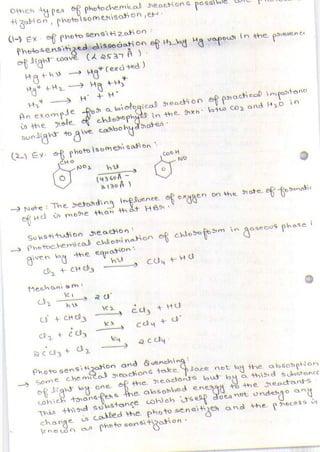 Other types of photochemical reactions possible are photosensi-
tization, photoisomerisation, etc.
(1→) Ex. of photosensitization:
Photosensitized dissociation of H2 by Hg vapour in the presence
of light wave (λ 2537 Å)
Hg + hν → Hg* (excited)
Hg* + H2 → Hg + H2*
H2* → H· + H·
An example for a biological reaction of practical importance
is the role of chlorophyll in the rxn. btw CO2 and H2O in
sunlight to give carbohydrates.
(2.) Ex. of photoisomerisation:
CHO COOH
NO2 hν NO
→ Note: The retarding influence of oxygen on the rate of formatio
of HCl is more than that HBr.
Substitution reaction:
→ Photochemical chlorination of chloroform in gaseous phase i
given by the equation:
Cl2 + CHCl3 hν → CCl4 + HCl
Mechanism:
Cl2 K1 → 2Cl·
Cl· + CHCl3 K2 → ĊCl3 + HCl
Cl2 + ĊCl3 K3 → CCl4 + Cl·
2ĊCl3 + Cl2 K4 → 2CCl4
Photosensitization and Quenching:
→ Some chemical reactions take place not by the absorption
of light by one of the reactants but by a third substance
which transfers the absorbed energy to the reactants
This third substance which itself does not undergo any
change is called the photosensitizer and the process is
known as photosensitization.